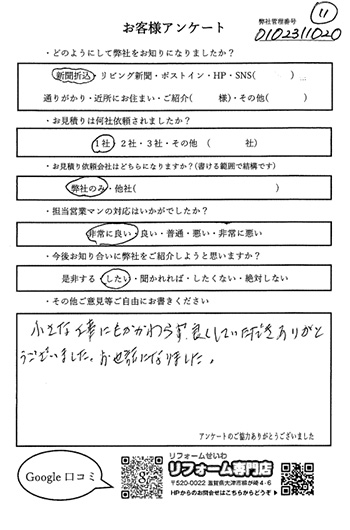 11
お客様アンケート
弊社管理番号
0102311020
・どのようにして弊社をお知りになりましたか？
新聞折込・リビング新聞・ポストイン・HP・SNS(　　　)
通りがかり・近所にお住まい・ご紹介(　　　様)・その他(　　　)
・お見積りは何社依頼されましたか？
1社・2社・3社・その他　(　　　社)
・お見積り依頼会社はどちらになりますか？(書ける範囲で結構です)
弊社のみ・他社(　　　)
・担当営業マンの対応はいかがでしたか？
非常に良い・良い・普通・悪い・非常に悪い
・今後お知り合いに弊社をご紹介しようと思いますか？
是非する・したい・聞かれれば・したくない・絶対しない
・その他ご意見等ご自由にお書きください
小さな仕事にもかかわらず、良くしていただきありがと
うございました。お世話になりました。
アンケートのご協力ありがとうございました
Google 口コミ
リフォームせいわ
リフォーム専門店
〒520-0022 滋賀県大津市柳が崎4-6
HPからのお問合せはこちらからどうぞ